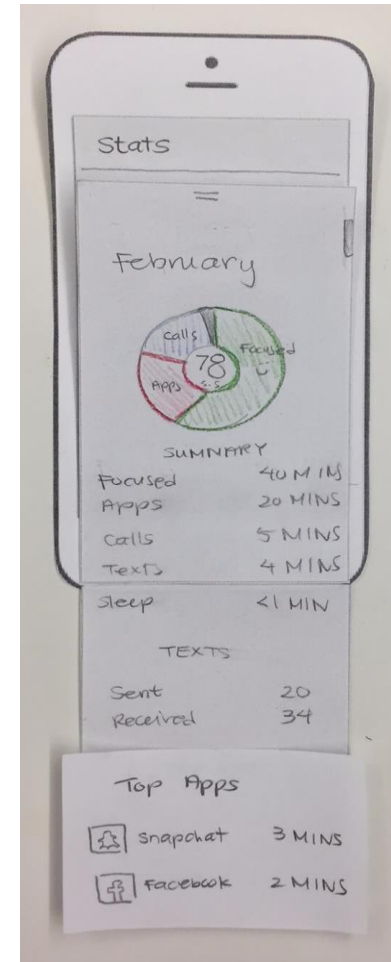 Stats
February
Calls
Focused
78
Apps
S.S
SUMMARY
Focused 40 MINS
Apps 20 MINS
Calls 5 MINS
Texts 4 MINS
Sleep <1 MIN
TEXTS
Sent 20
Received 34
Top Apps
Snapchat 3 MINS
Facebook 2 MINS